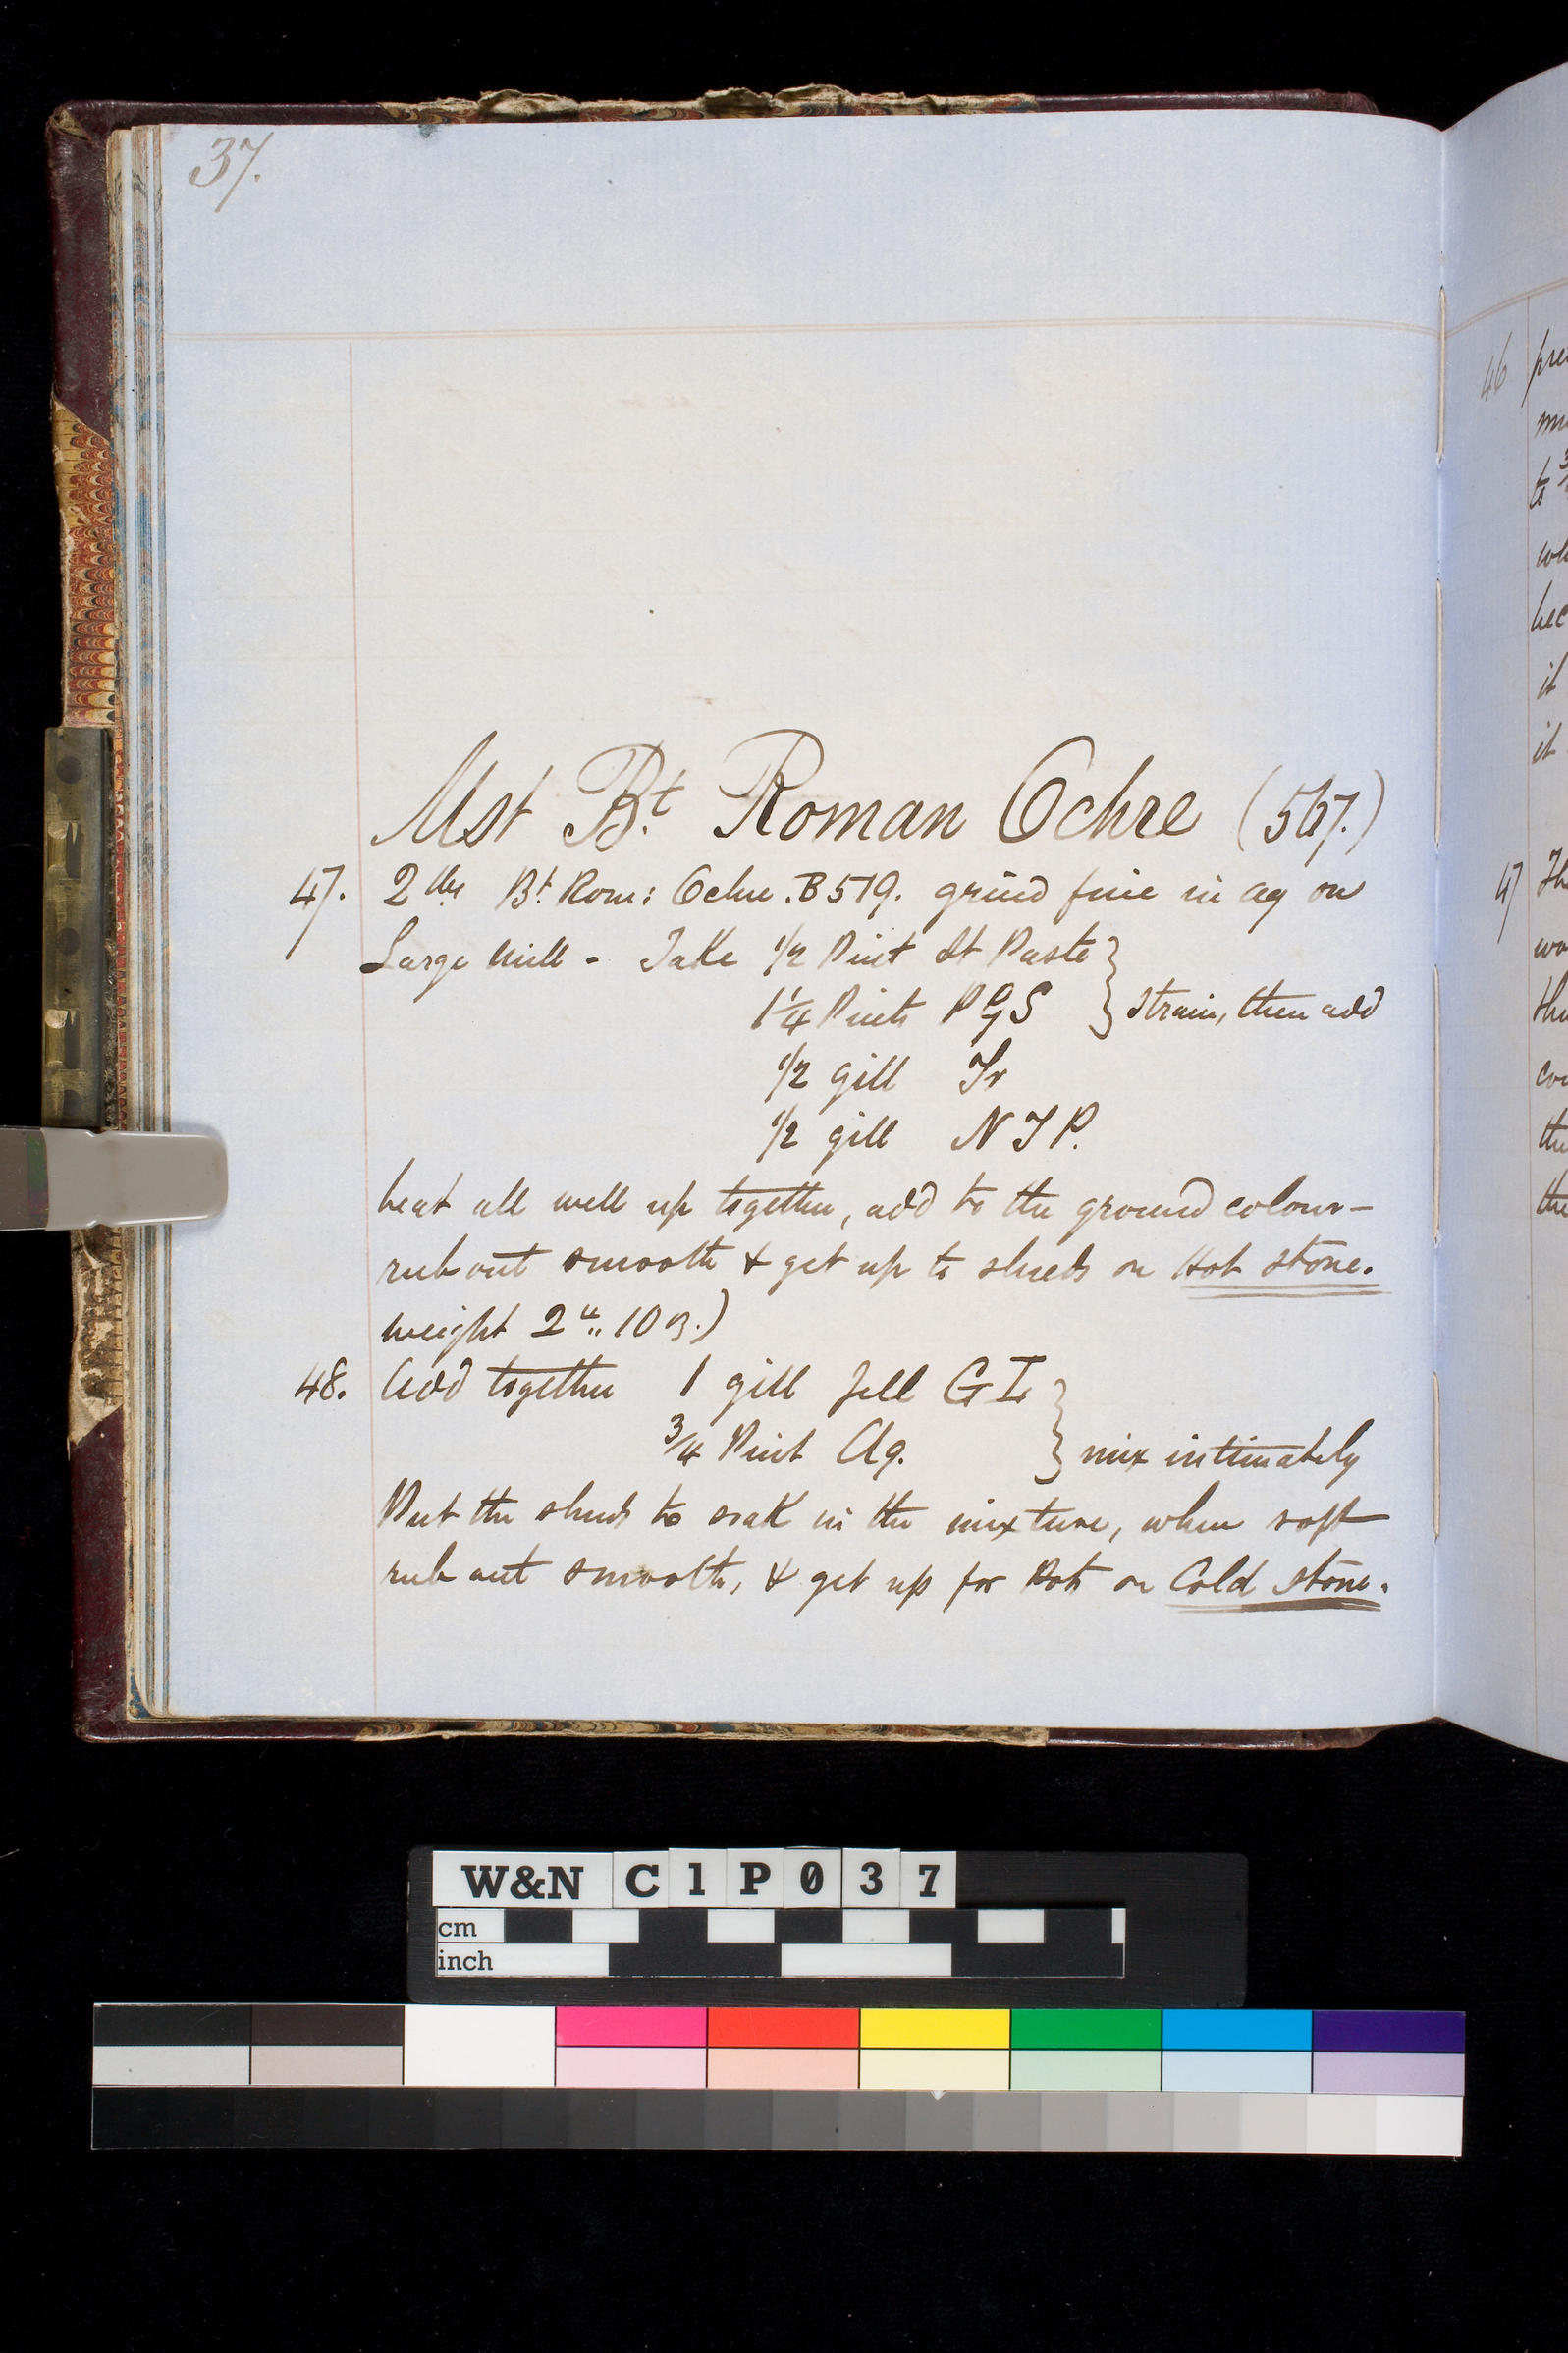 37.
Mst Bt. Roman Ochre (567.)
47. 2 lbs Bt. Rom: Ochre . B579. grind fine in aq on
Large Mill - Take 1/2 Pint St Paste
1 1/4 Pints P G S } Strain, then add
1/2 gill Tr
1/2 gill N T P.
beat all well up together, add to the ground colour -
rub out smooth & get up to shreds on Hot Stone.
weight 2 lb 10 oz.)
48. Add together 1 gill Jell G I
3/4 Pint Aq. } mix intimately
Put the shreds to soak in the mixture, when soft
rub out smooth, & get up for Pots on Cold Stone.
46 pre
mu
to 3/
wh
bec
it
it
47 Th
wo
the
co
the
the
W&N C1P037
cm
inch